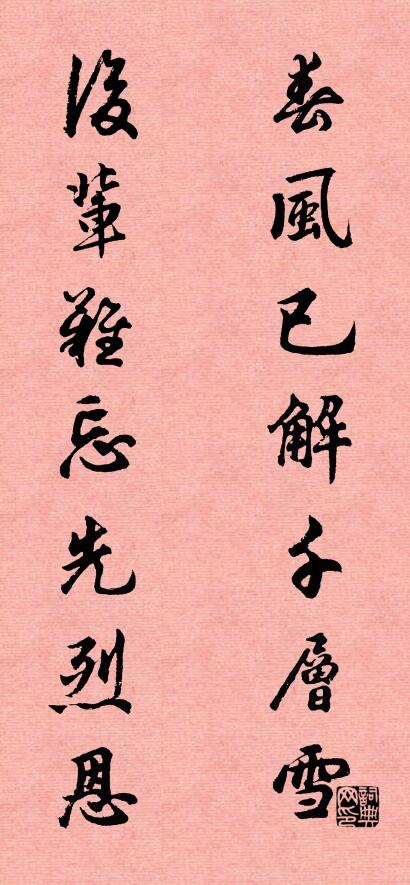 春風已解千層雪
後輩難忘先烈恩
詞典網印